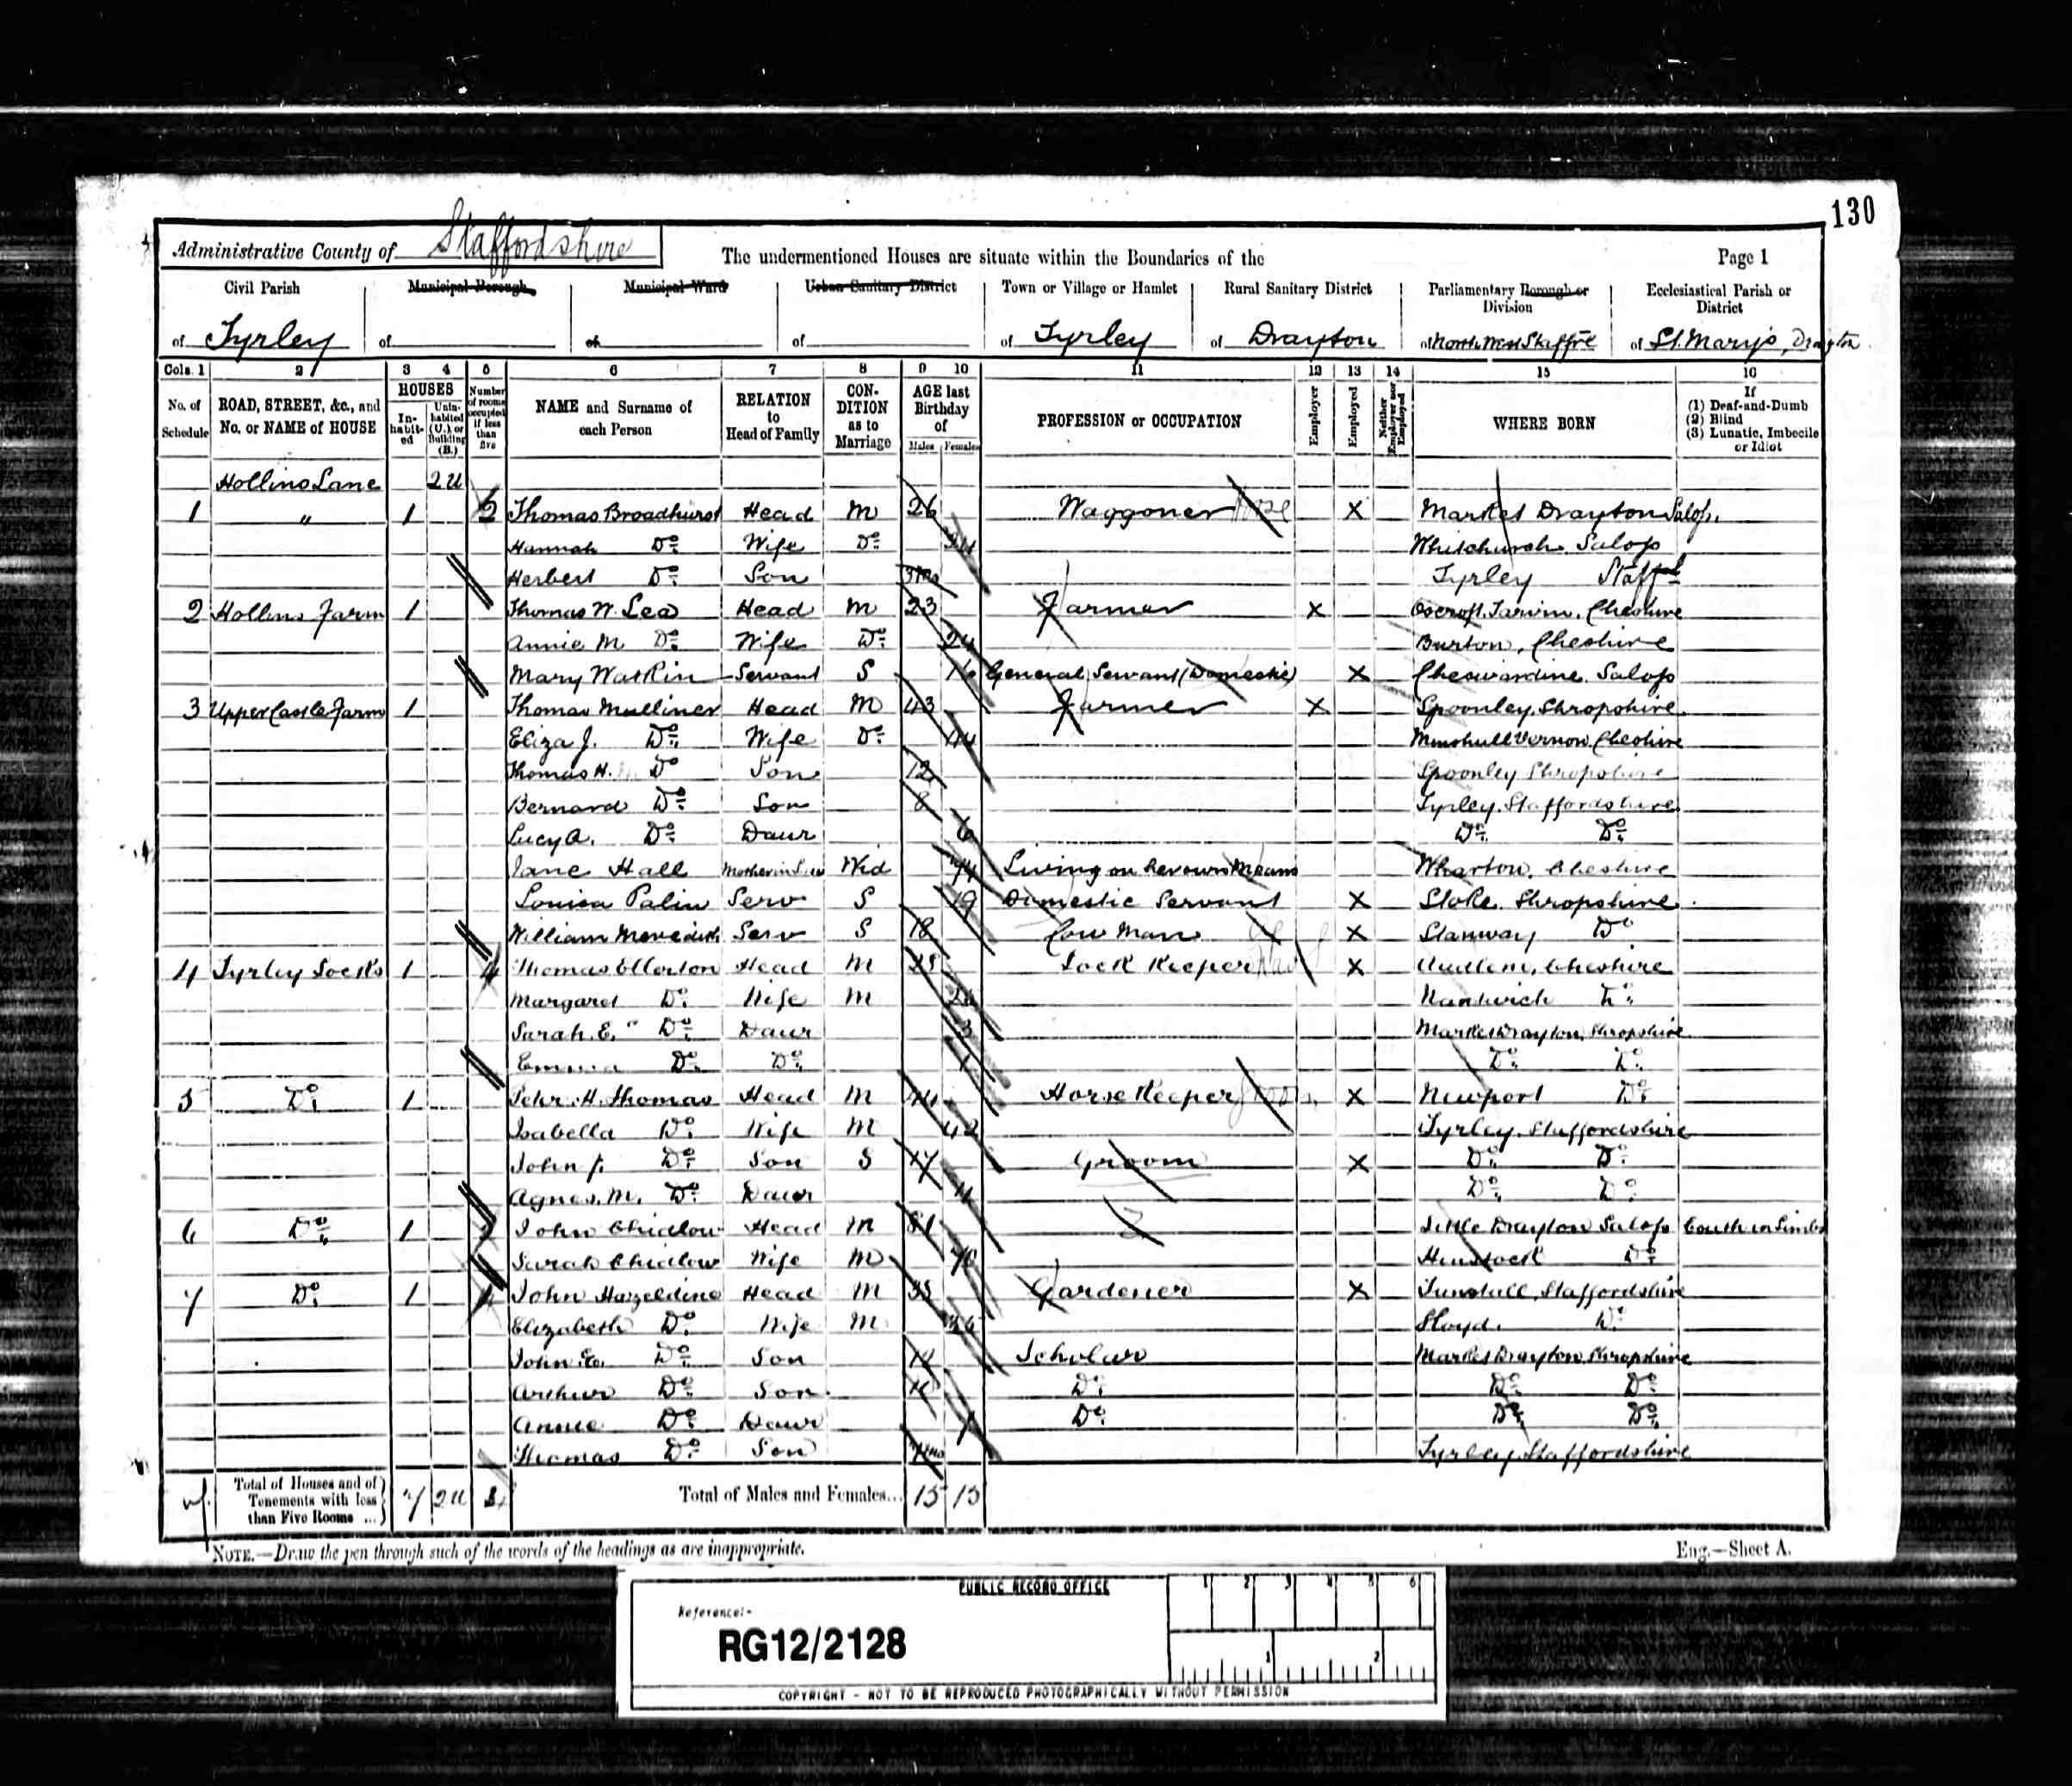 130
Administrative County of Staffordshire The undermentioned Houses are situate within the Boundaries of the Page 1
Civil Parish Municipal Borough Municipal Ward Urban Sanitary District Town or Village or Hamlet Rural Sanitary District Parliamentary Borough or Division Ecclesiastical Parish or District
of Tyrley of of of of Tyrley of Drayton of North West Staffs of St. Mary's, Drayton
Cols. 1 2 3 4 5 6 7 8 9 10 11 12 13 14 15 16
No. of Schedule ROAD, STREET, &c., and No. or NAME of HOUSE HOUSES Inhabited Uninhabited (U.) or Building (B.) Number of rooms occupied if less than five NAME and Surname of each Person RELATION to Head of Family CONDITION as to Marriage AGE last Birthday of Males Females PROFESSION or OCCUPATION Employer Employed Neither Employer nor Employed WHERE BORN If (1) Deaf-and-Dumb (2) Blind (3) Lunatic, Imbecile or Idiot
Hollins Lane 2U
1 " 1 2 Thomas Broadhurst Head M 26 Waggoner X Market Drayton Salop.
Hannah Do. Wife Do. Whitchurch Salop
Herbert Do. Son Tyrley Staff
2 Hollins Farm 1 Thomas W. Lea Head M 23 Farmer X Oscroft, Tarvin, Cheshire
Annie M Do. Wife Do. 24 Burton, Cheshire
Mary Watkin Servant S 16 General Servant (Domestic) X Cheswardine Salop
3 Upper Castle Farm 1 Thomas Mulliner Head M 43 Farmer X Spoonley. Shropshire
Eliza J. Do. Wife Do. 44 Minshull Vernon, Cheshire
Thomas H. Do Son 12 Spoonley Shropshire
Bernard Do. Son 8 Tyrley. Staffordshire
Lucy A. Do. Daur 6 Do. Do.
Jane Hall Mother in Law Wid 74 Living on her own Means Wharton, Cheshire
Louisa Palin Serv S 19 Domestic Servant X Stoke. Shropshire
William Meredith Serv S 18 Cow Man X Stanway Do
4 Tyrley Locks 1 4 Thomas Ellerton Head M Lock Keeper X Audlem, Cheshire
Margaret Do. Wife M Nantwich Do.
Sarah. E. Do. Daur 3 Market Drayton, Shropshire
Emma Do. Do. 1 Do. Do.
5 Do. 1 Peter. H. Thomas Head M Horse Keeper X Newport Do.
Isabella Do. Wife M 42 Tyrley. Staffordshire
John J. Do. Son S 17 Groom X Do. Do.
Agnes. M. Do. Daur 11 Do. Do.
6 Do. 1 2 John Chidlow Head M 81 Little Drayton Salop
Sarah Chidlow Wife M 78 Hinstock Do
7 Do. 1 4 John Hazeldine Head M 35 Gardener X Tunstall, Staffordshire
Elizabeth Do. Wife M 36 Do.
John E. Do. Son Scholar Market Drayton, Shropshire
Arthur Do. Son Do. Do. Do.
Annie Do. Daur Do. Do. Do.
Thomas Do. Son Tyrley Staffordshire
Total of Houses and of Tenements with less than Five Rooms ... 7 2U Total of Males and Females... 15 15
NOTE.—Draw the pen through such of the words of the headings as are inappropriate. Eng.—Sheet A.
PUBLIC RECORD OFFICE
Reference:-
RG12/2128
1 2 3 4 5 6
1 2
COPYRIGHT - NOT TO BE REPRODUCED PHOTOGRAPHICALLY WITHOUT PERMISSION